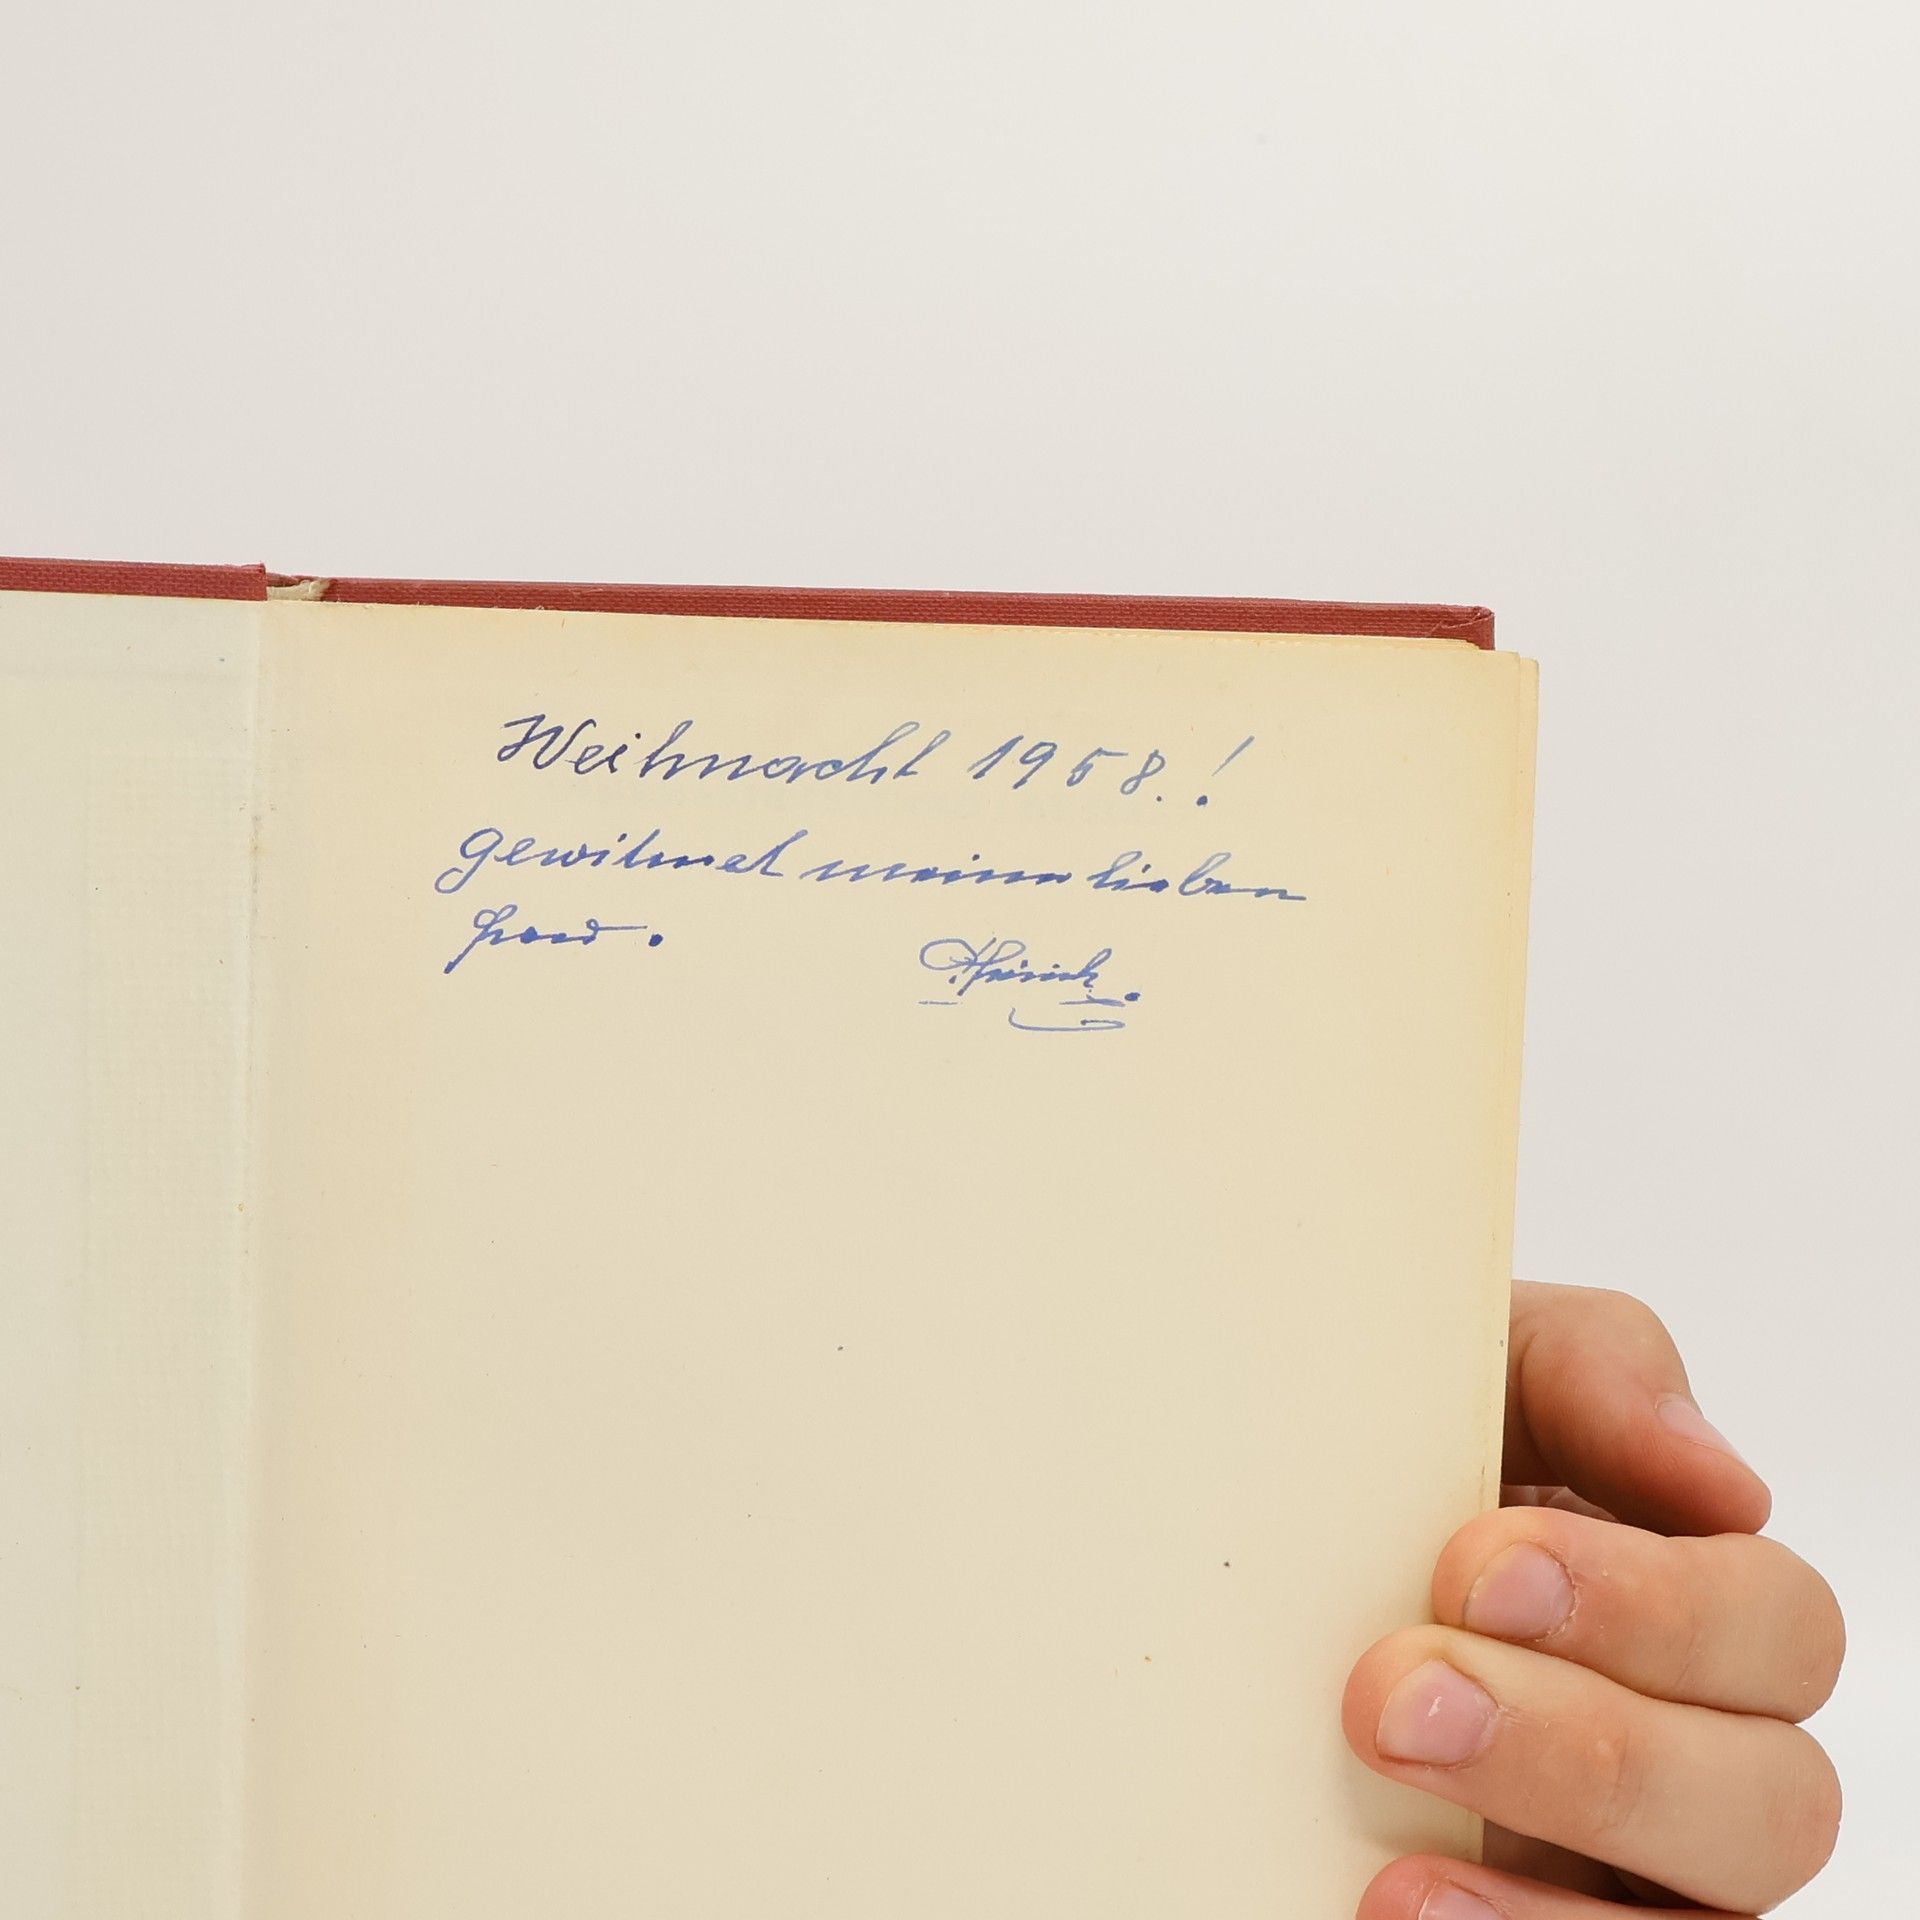 Weihnacht 1958.!
gewitmet meiner lieben